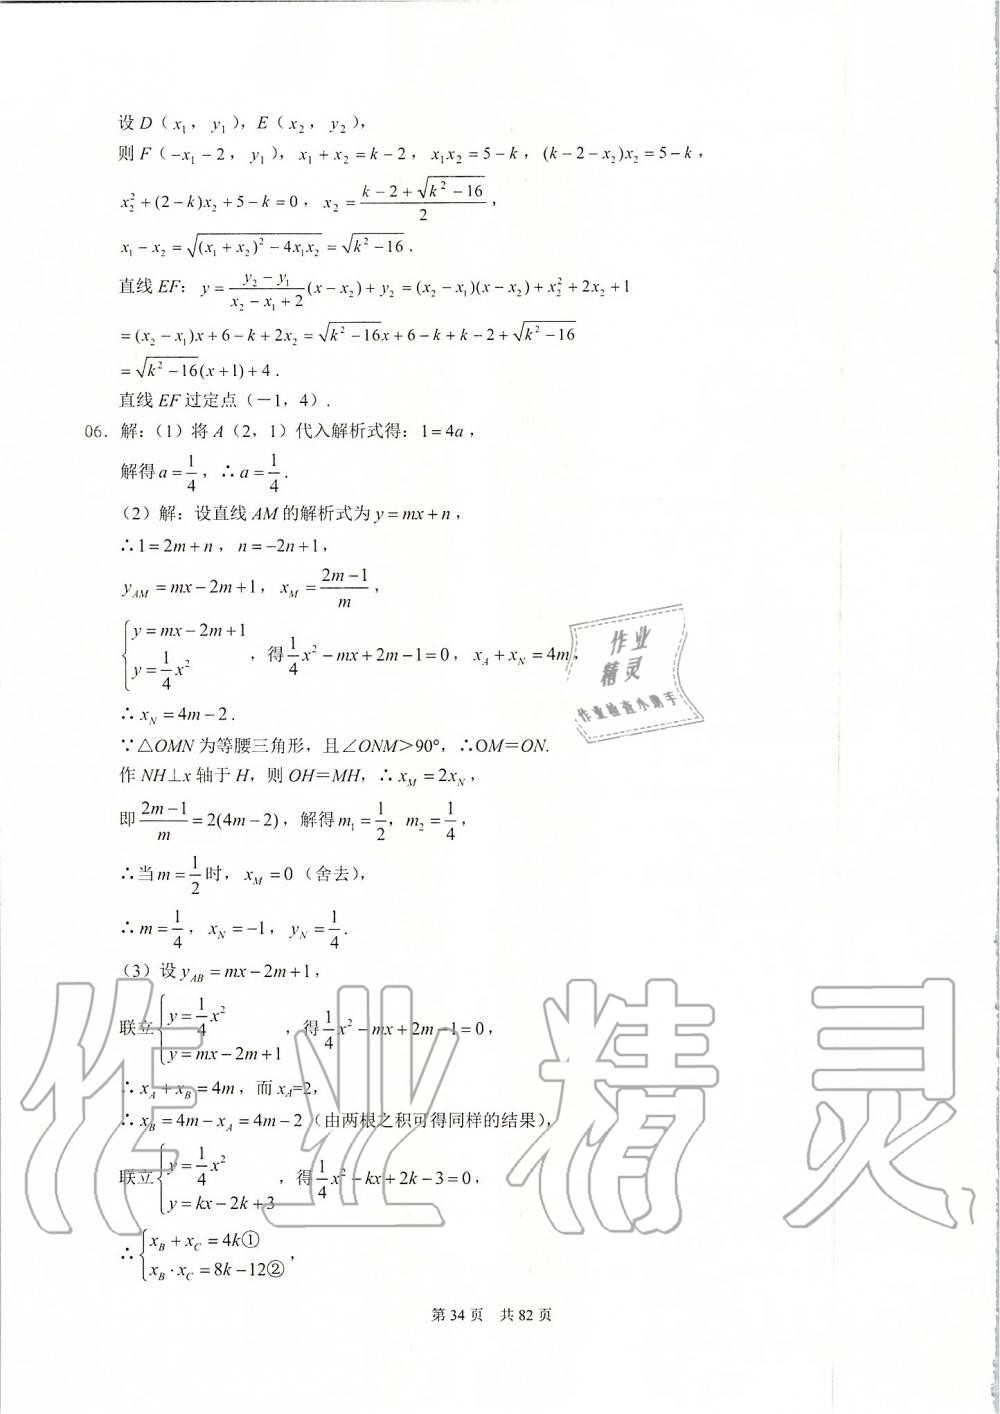 设 D（x₁，y₁），E（x₂，y₂），
则 F（−x₁−2，y₁），x₁+x₂=k−2，x₁x₂=5−k，(k−2−x₂)x₂=5−k，
x₂²+(2−k)x₂+5−k=0，x₂=(k−2+√(k²−16))/2，
x₁−x₂=√((x₁+x₂)²−4x₁x₂)=√(k²−16).
直线 EF：y=(y₂−y₁)/(x₂−x₁+2)(x−x₂)+y₂=(x₂−x₁)(x−x₂)+x₂²+2x₂+1
=(x₂−x₁)x+6−k+2x₂=√(k²−16)x+6−k+k−2+√(k²−16)
=√(k²−16)(x+1)+4.
直线 EF 过定点（−1，4）.
06. 解：（1）将 A（2，1）代入解析式得：1=4a，
解得 a=1/4，∴a=1/4.
（2）解：设直线 AM 的解析式为 y=mx+n，
∴1=2m+n，n=−2n+1，
y_AM=mx−2m+1，x_M=(2m−1)/m，
{y=mx−2m+1
y=1/4x²，得1/4x²−mx+2m−1=0，x_A+x_N=4m，
∴x_N=4m−2.
∵△OMN 为等腰三角形，且∠ONM>90°，∴OM=ON.
作 NH⊥x 轴于 H，则 OH=MH，∴x_M=2x_N，
即(2m−1)/m=2(4m−2)，解得 m₁=1/2，m₂=1/4，
∴当 m=1/2时，x_M=0（舍去），
∴m=1/4，x_N=−1，y_N=1/4.
（3）设 y_AB=mx−2m+1，
联立{y=1/4x²
y=mx−2m+1，得1/4x²−mx+2m−1=0，
∴x_A+x_B=4m，而 x_A=2，
∴x_B=4m−x_A=4m−2（由两根之积可得同样的结果），
联立{y=1/4x²
y=kx−2k+3，得1/4x²−kx+2k−3=0，
∴{x_B+x_C=4k①
x_B·x_C=8k−12②，
第 34 页 共 82 页
作业
精灵
作业检查小助手
作业精灵